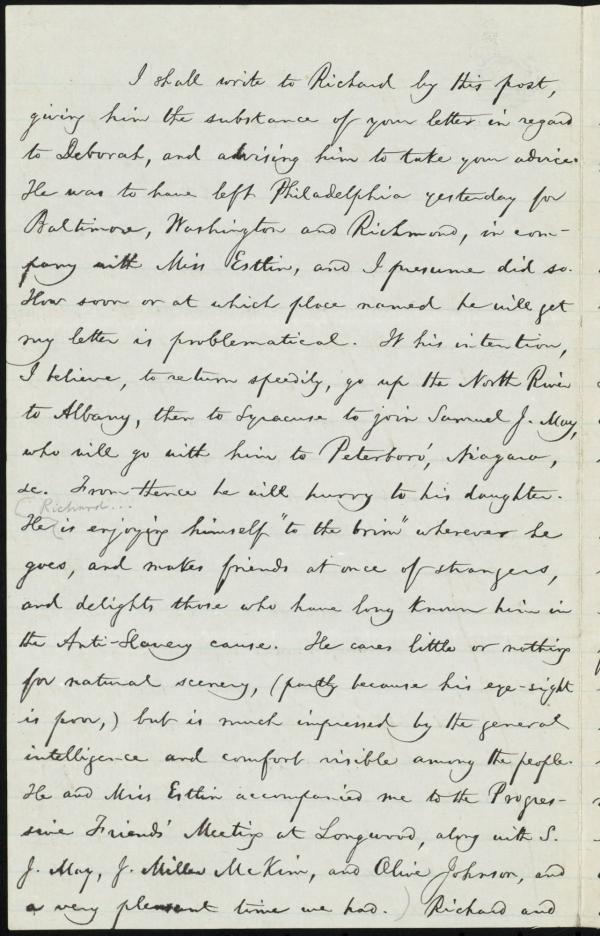 I shall write to Richard by this post,
giving him the substance of your letter in regard
to Deborah, and advising him to take your advice.
He was to have left Philadelphia yesterday for
Baltimore, Washington and Richmond, in com-
pany with Miss Estlin, and I presume did so.
How soon or at which place named he will get
my letter is problematical. It his intention,
I believe, to return speedily, go up the North River
to Albany, then to Syracuse to join Samuel J. May,
who will go with him to Peterboro', Niagara,
&c. From thence he will hurry to his daughter.
(Richard...
He is enjoying himself "to the brim" wherever he
goes, and makes friends at once of strangers,
and delights those who have long known him in
the Anti-Slavery cause. He cares little or nothing
for natural scenery, (partly because his eye-sight
is poor,) but is much impressed by the general
intelligence and comfort visible among the people.
He and Miss Estlin accompanied me to the Progres-
sive Friends' Meeting at Longwood, along with S.
J. May, J. Miller McKim, and Olive Johnson, and
a very pleasant time we had.) Richard and